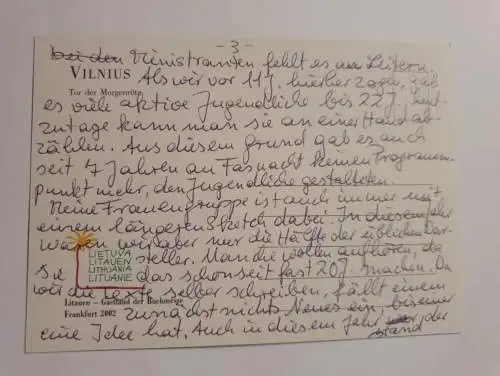 - 3 -
bei den Ministranten fehlt es an Leitern.
VILNIUS
Als wir vor 11 J. hierher zogen, gab
Tor der Morgenröte
es viele aktive Jugendliche bis 22 J. heut-
zutage kann man sie an einer Hand ab-
zählen. Aus diesem grund gab es auch
seit 7 Jahren an Fasnacht keinen Programm-
punkt mehr, den Jugendliche gestalteten.
Meine Frauengruppe ist auch immer mit
einem längeren Sketch dabei. In diesem Jahr
waren wir aber nur die Hälfte der üblichen Dar-
steller. Man die wollen aufhören, da
LIETUVA
LITAUEN
LITHUANIA
LITUANIE
sie das schon seit fast 20 J. machen. Da
wir die Texte selber schreiben, fällt einem
Litauen – Gastland der Buchmesse
Frankfurt 2002
zunächst nichts Neues ein, bis einer
eine Idee hat. Auch in diesem Jahr der
stand